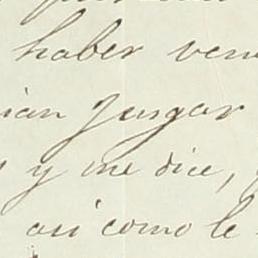 haber ven
ian Jusgar
y me dice,
asi como le